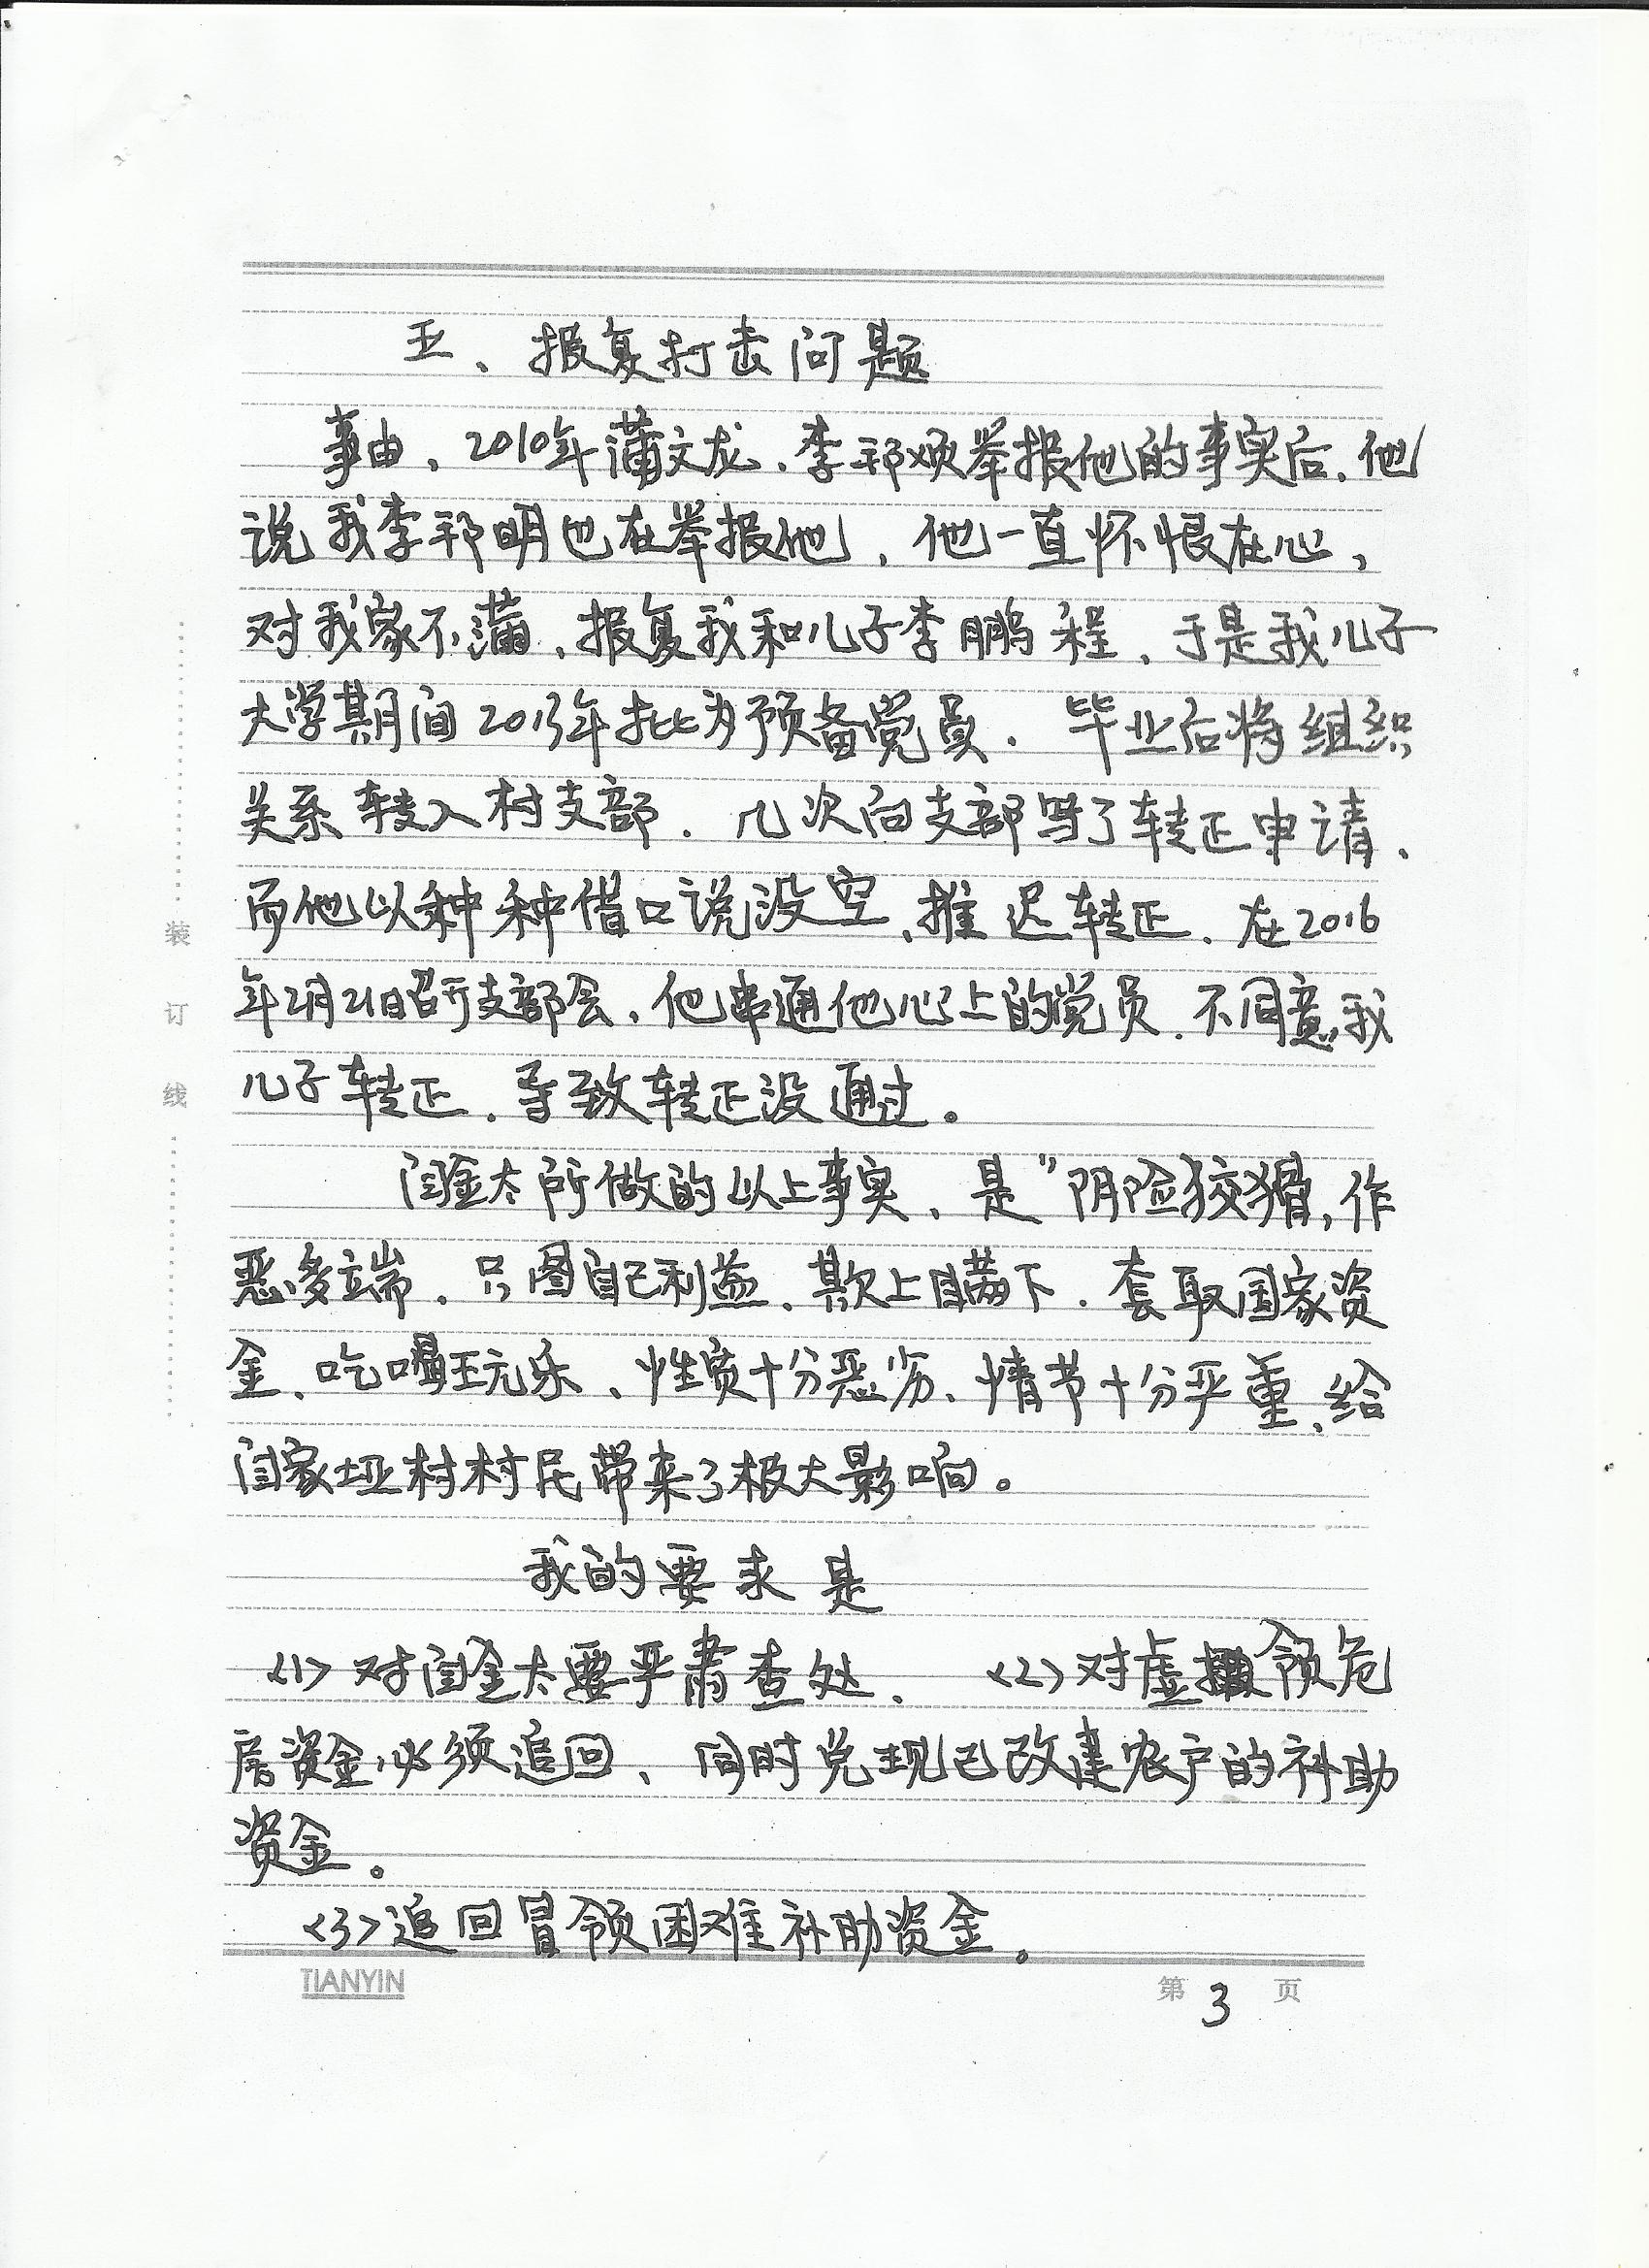 五、报复打击问题
事由、2010年蒲文龙、李邦顺举报他的事实后、他
说我李邦明也在举报他，他一直怀恨在心，
对我家不满、报复我和儿子李鹏程、于是我儿子
大学期间2013年批为预备党员. 毕业后将组织
关系转入村支部. 几次向支部写了转正申请、
而他以种种借口说没空、推迟转正、在2016
年2月21日召开支部会、他串通他心上的党员、不同意我
儿子转正、导致转正没通过。
闫金太所做的以上事实、是"阴险狡猾，作
恶多端、只图自己利益、欺上瞒下. 套取国家资
金、吃喝玩乐、性质十分恶劣、情节十分严重、给
闫家垭村村民带来了极大影响。
我的要求是
<1> 对闫金太要严肃查处、 <2> 对虚领危
房资金必须追回、同时兑现已改建农户的补助
资金。
<3> 追回冒领困难补助资金。
装订线
TIANYIN
第 3 页